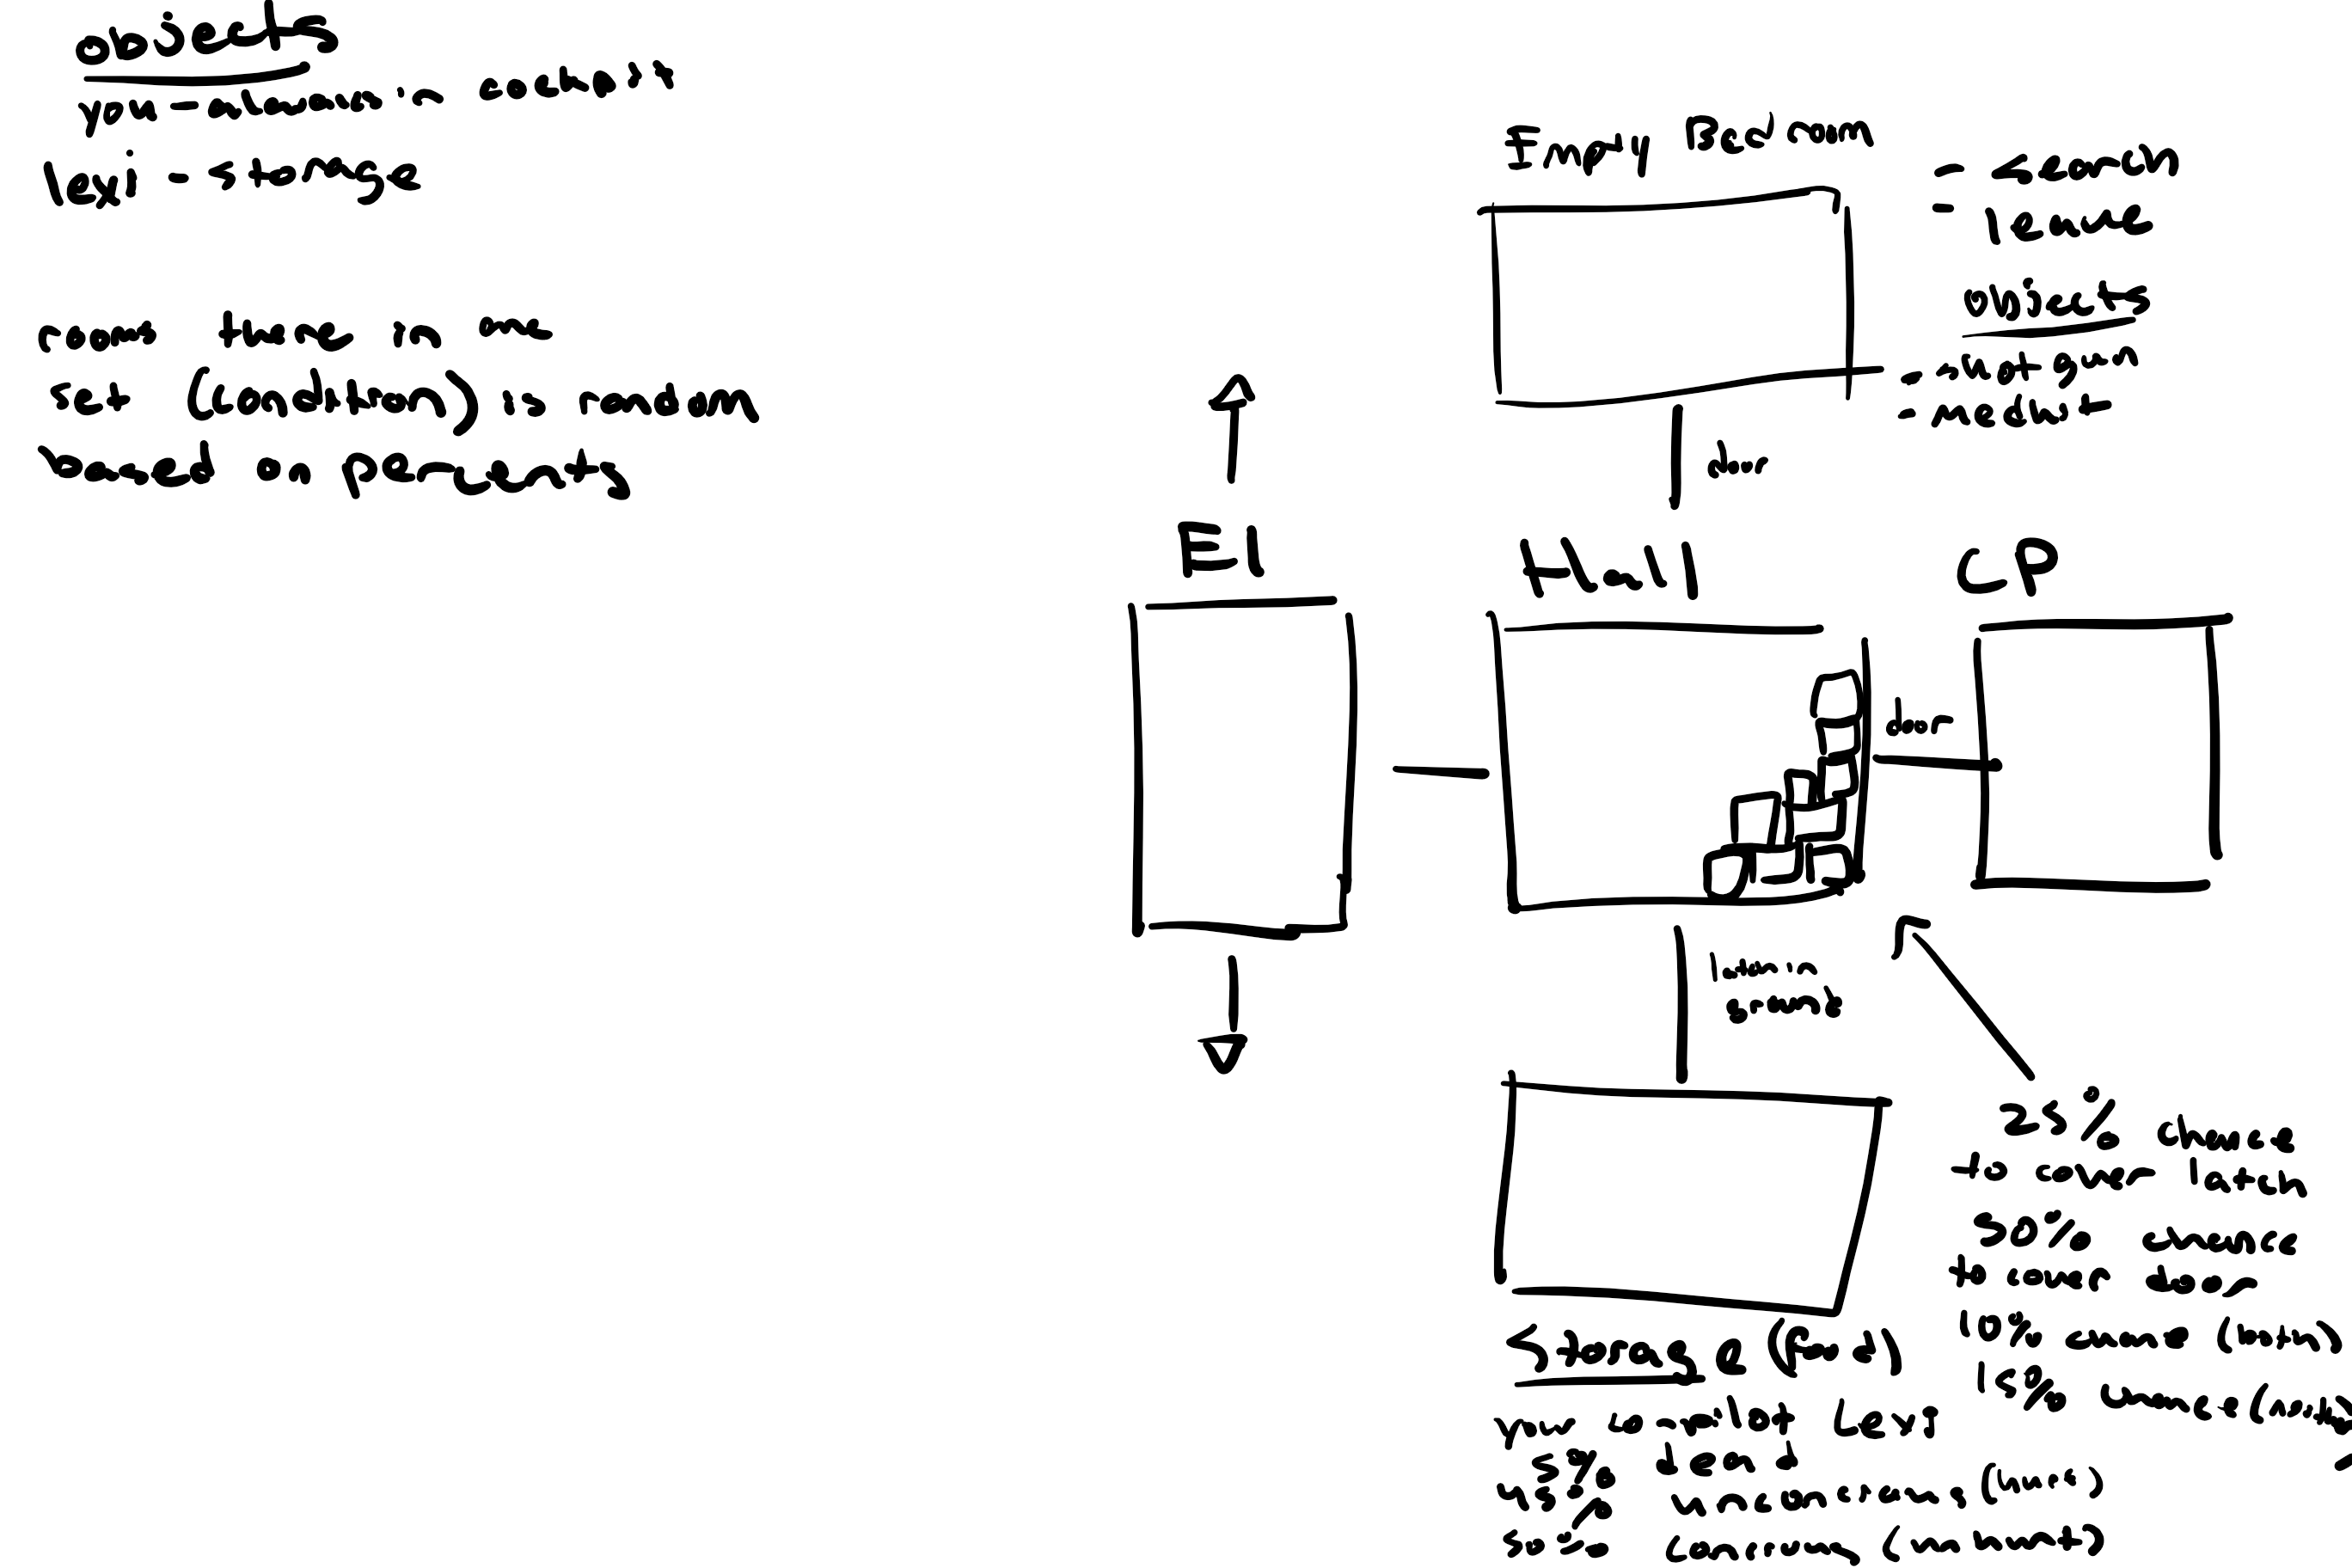 objects
you - unknown in cockpit
Leyi - storage
rooms there in are
set (condition) is random
based on percents
Empty Bedroom
- search
- leave
objects
- shotgun
- medkit
door
El
Hall
CP
door
latch in
ground
25% chance
to cover latch
50% chance
to cover door
10% chance (both)
15% chance (neither
Storage (Cond)
you co-pilot Lexi
5% dead
45% unconscious (hurt)
50% conscious (un hurt)